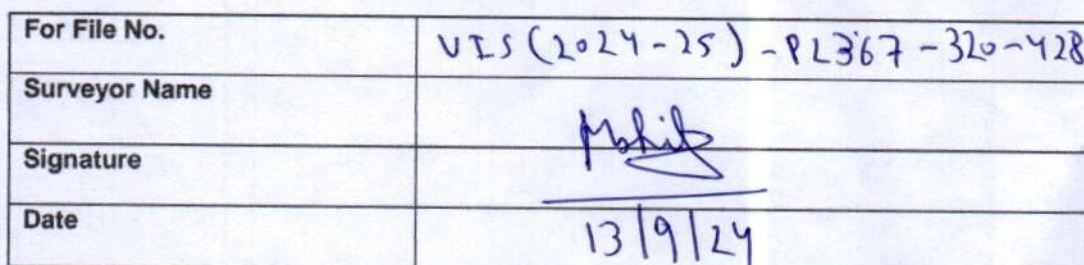 For File No. VIS (2024-25) - PL367 - 320 - 428
Surveyor Name
Mohit
Signature
Date 13/9/24